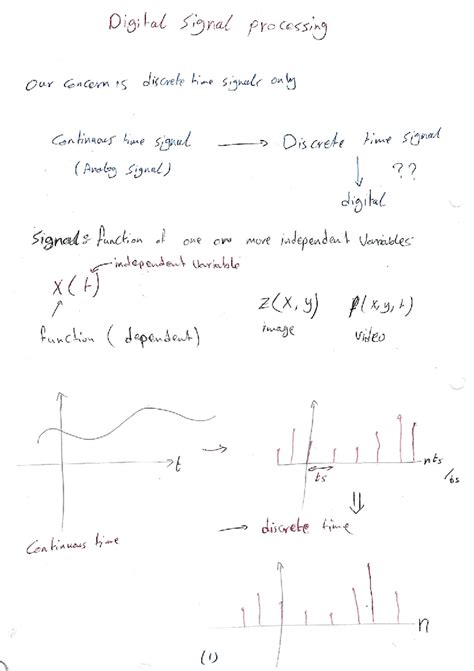 Digital Signal processing
Our concern is discrete time signals only
Continuous time signal → Discrete time signal
(Analog Signal) ↓ ??
digital
Signal: function of one or more independent Variables
independent variable
x(t) z(x,y) f(x,y,t)
image video
function (dependent)
t
nts
/ts
ts
Continuous time → discrete time
n
(1)